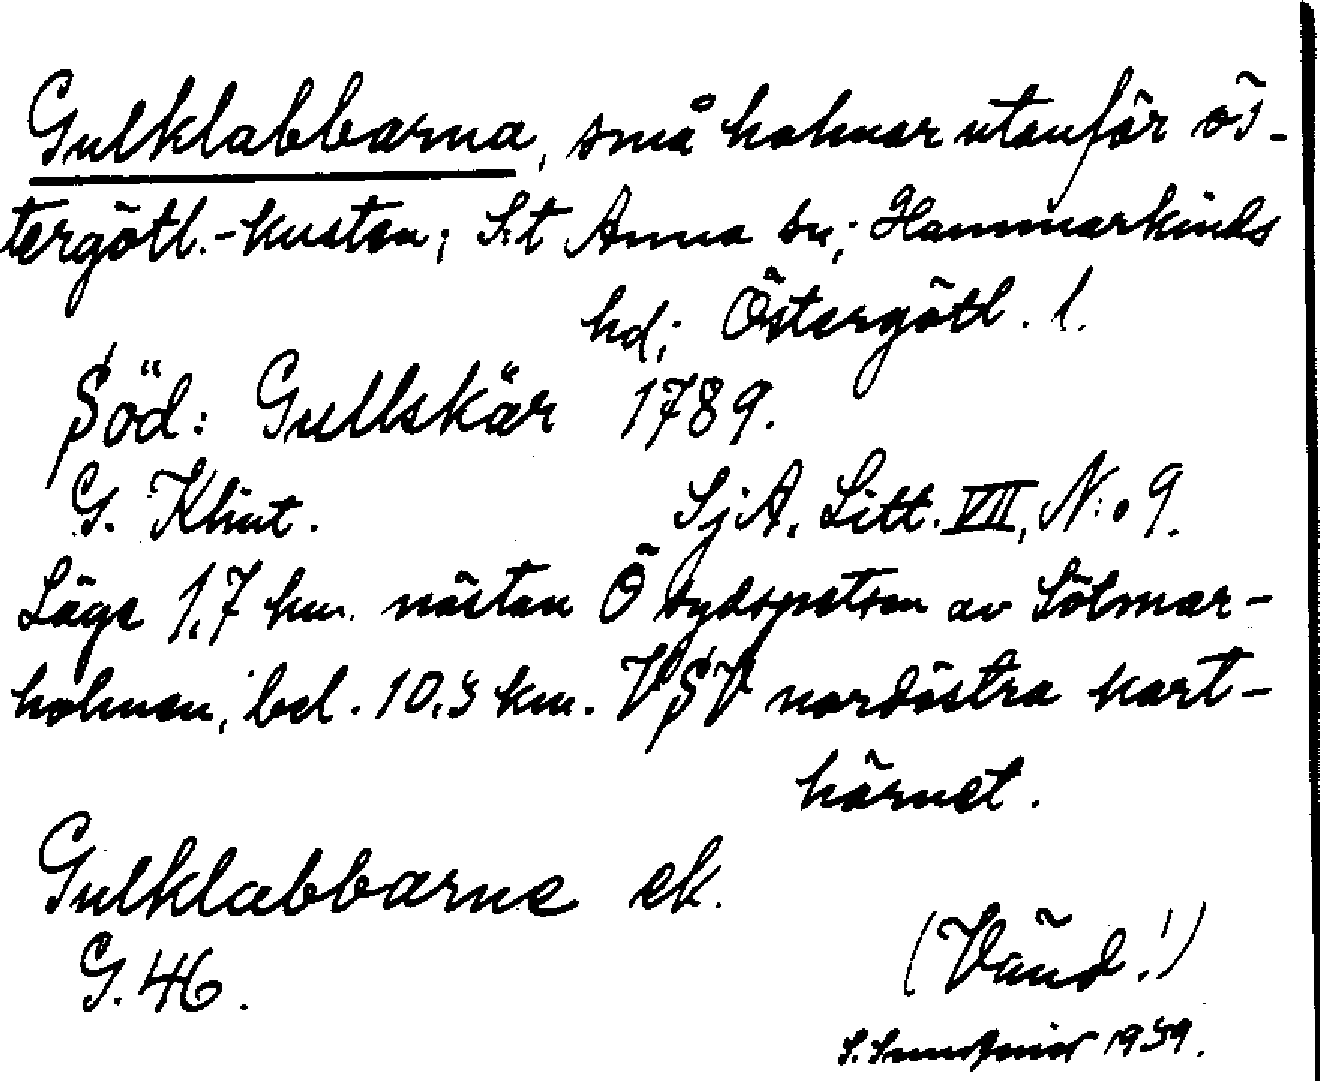 Gulklabbarna, små holmar utanför ös-
tergötl.-kusten; S:t Anna sn; Hammarkinds
hd; Östergötl. l.
Söd: Gullskär 1789.
G. Klint. SjA. Litt. VII, N:o 9.
Läge 1,7 km. nästan Ö sydspetsen av Sölmar-
holmen, bel. 10,5 km. VSV nordöstra kart-
hörnet.
Gulklabbarne ek.
G. 46.
(Vänd!)
1939.